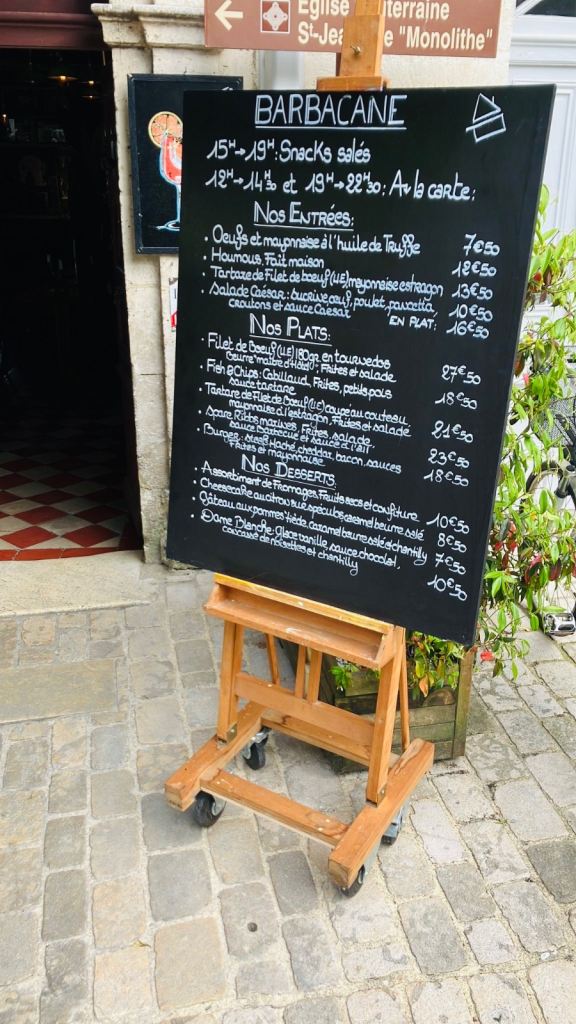 Eglise
St-Je "Monolithe"
BARBACANE
15H→19H: Snacks salés
12H→14H30 et 19H→22H30: A la carte:
Nos Entrées:
• Oeufs et mayonnaise à l'huile de Truffe 7€50
• Houmous, Fait maison 12€50
• Tartare de Filet de boeuf (UE), mayonnaise estragon 13€50
• Salade Caesar: sucrine, oeuf, poulet, pancetta, 10€50
croutons et sauce Caesar EN PLAT: 16€50
Nos Plats:
• Filet de Boeuf (UE) 180gr en tournedos 27€50
Beurre "maître d'Hôtel", Frites et salade
• Fish & Chips: Cabillaud, Frites, petits pois 18€50
sauce tartare
• Tartare de Filet de Boeuf (UE) coupé au couteau 21€50
mayonnaise à l'estragon, Frites et salade
• Spare Ribbs marinés, Frites, salade 23€50
sauce barbecue et sauce à l'ail
• Burger: steak Haché, cheddar, bacon, sauces 18€50
Frites et mayonnaise
Nos Desserts
• Assortiment de Fromages, Fruits secs et confiture 10€50
• Cheesecake au citron sur spéculos caramel beurre salé 8€50
• Gâteau aux pommes tiède, caramel beurre salé et chantilly 7€50
• Dame Blanche: glace vanille, sauce chocolat, 10€50
concassé de noisettes et chantilly